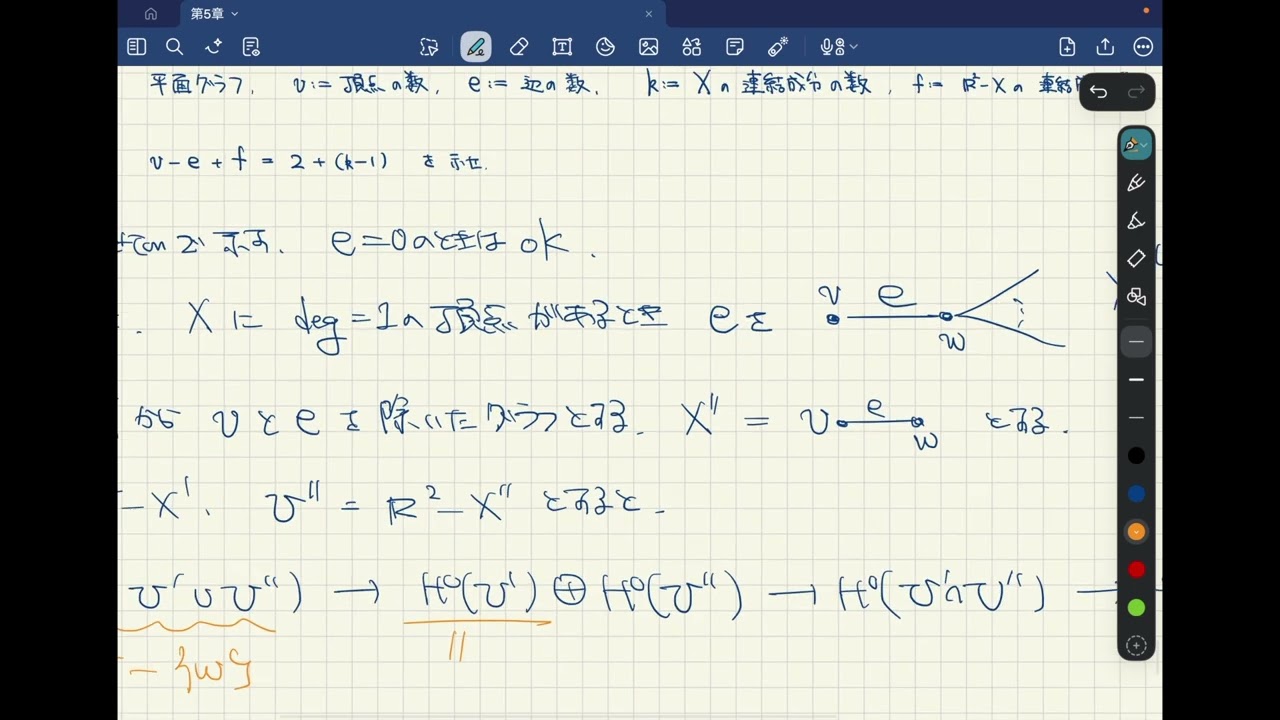 第5章
平面グラフ, v := 頂点の数, e := 辺の数, k := X の 連結成分の数, f := ℝ²-X の 連結
v - e + f = 2 + (k-1) を示せ.
で示す. e = 0 のときは ok.
X に deg = 1 の頂点があるとき e を v e w
から v と e を除いたグラフとする. X'' = v e w とする.
- X'. U'' = ℝ² - X'' とすると.
U' ∪ U'') → H⁰(U') ⊕ H⁰(U'') → H⁰(U' ∩ U'') →
- {w} ||